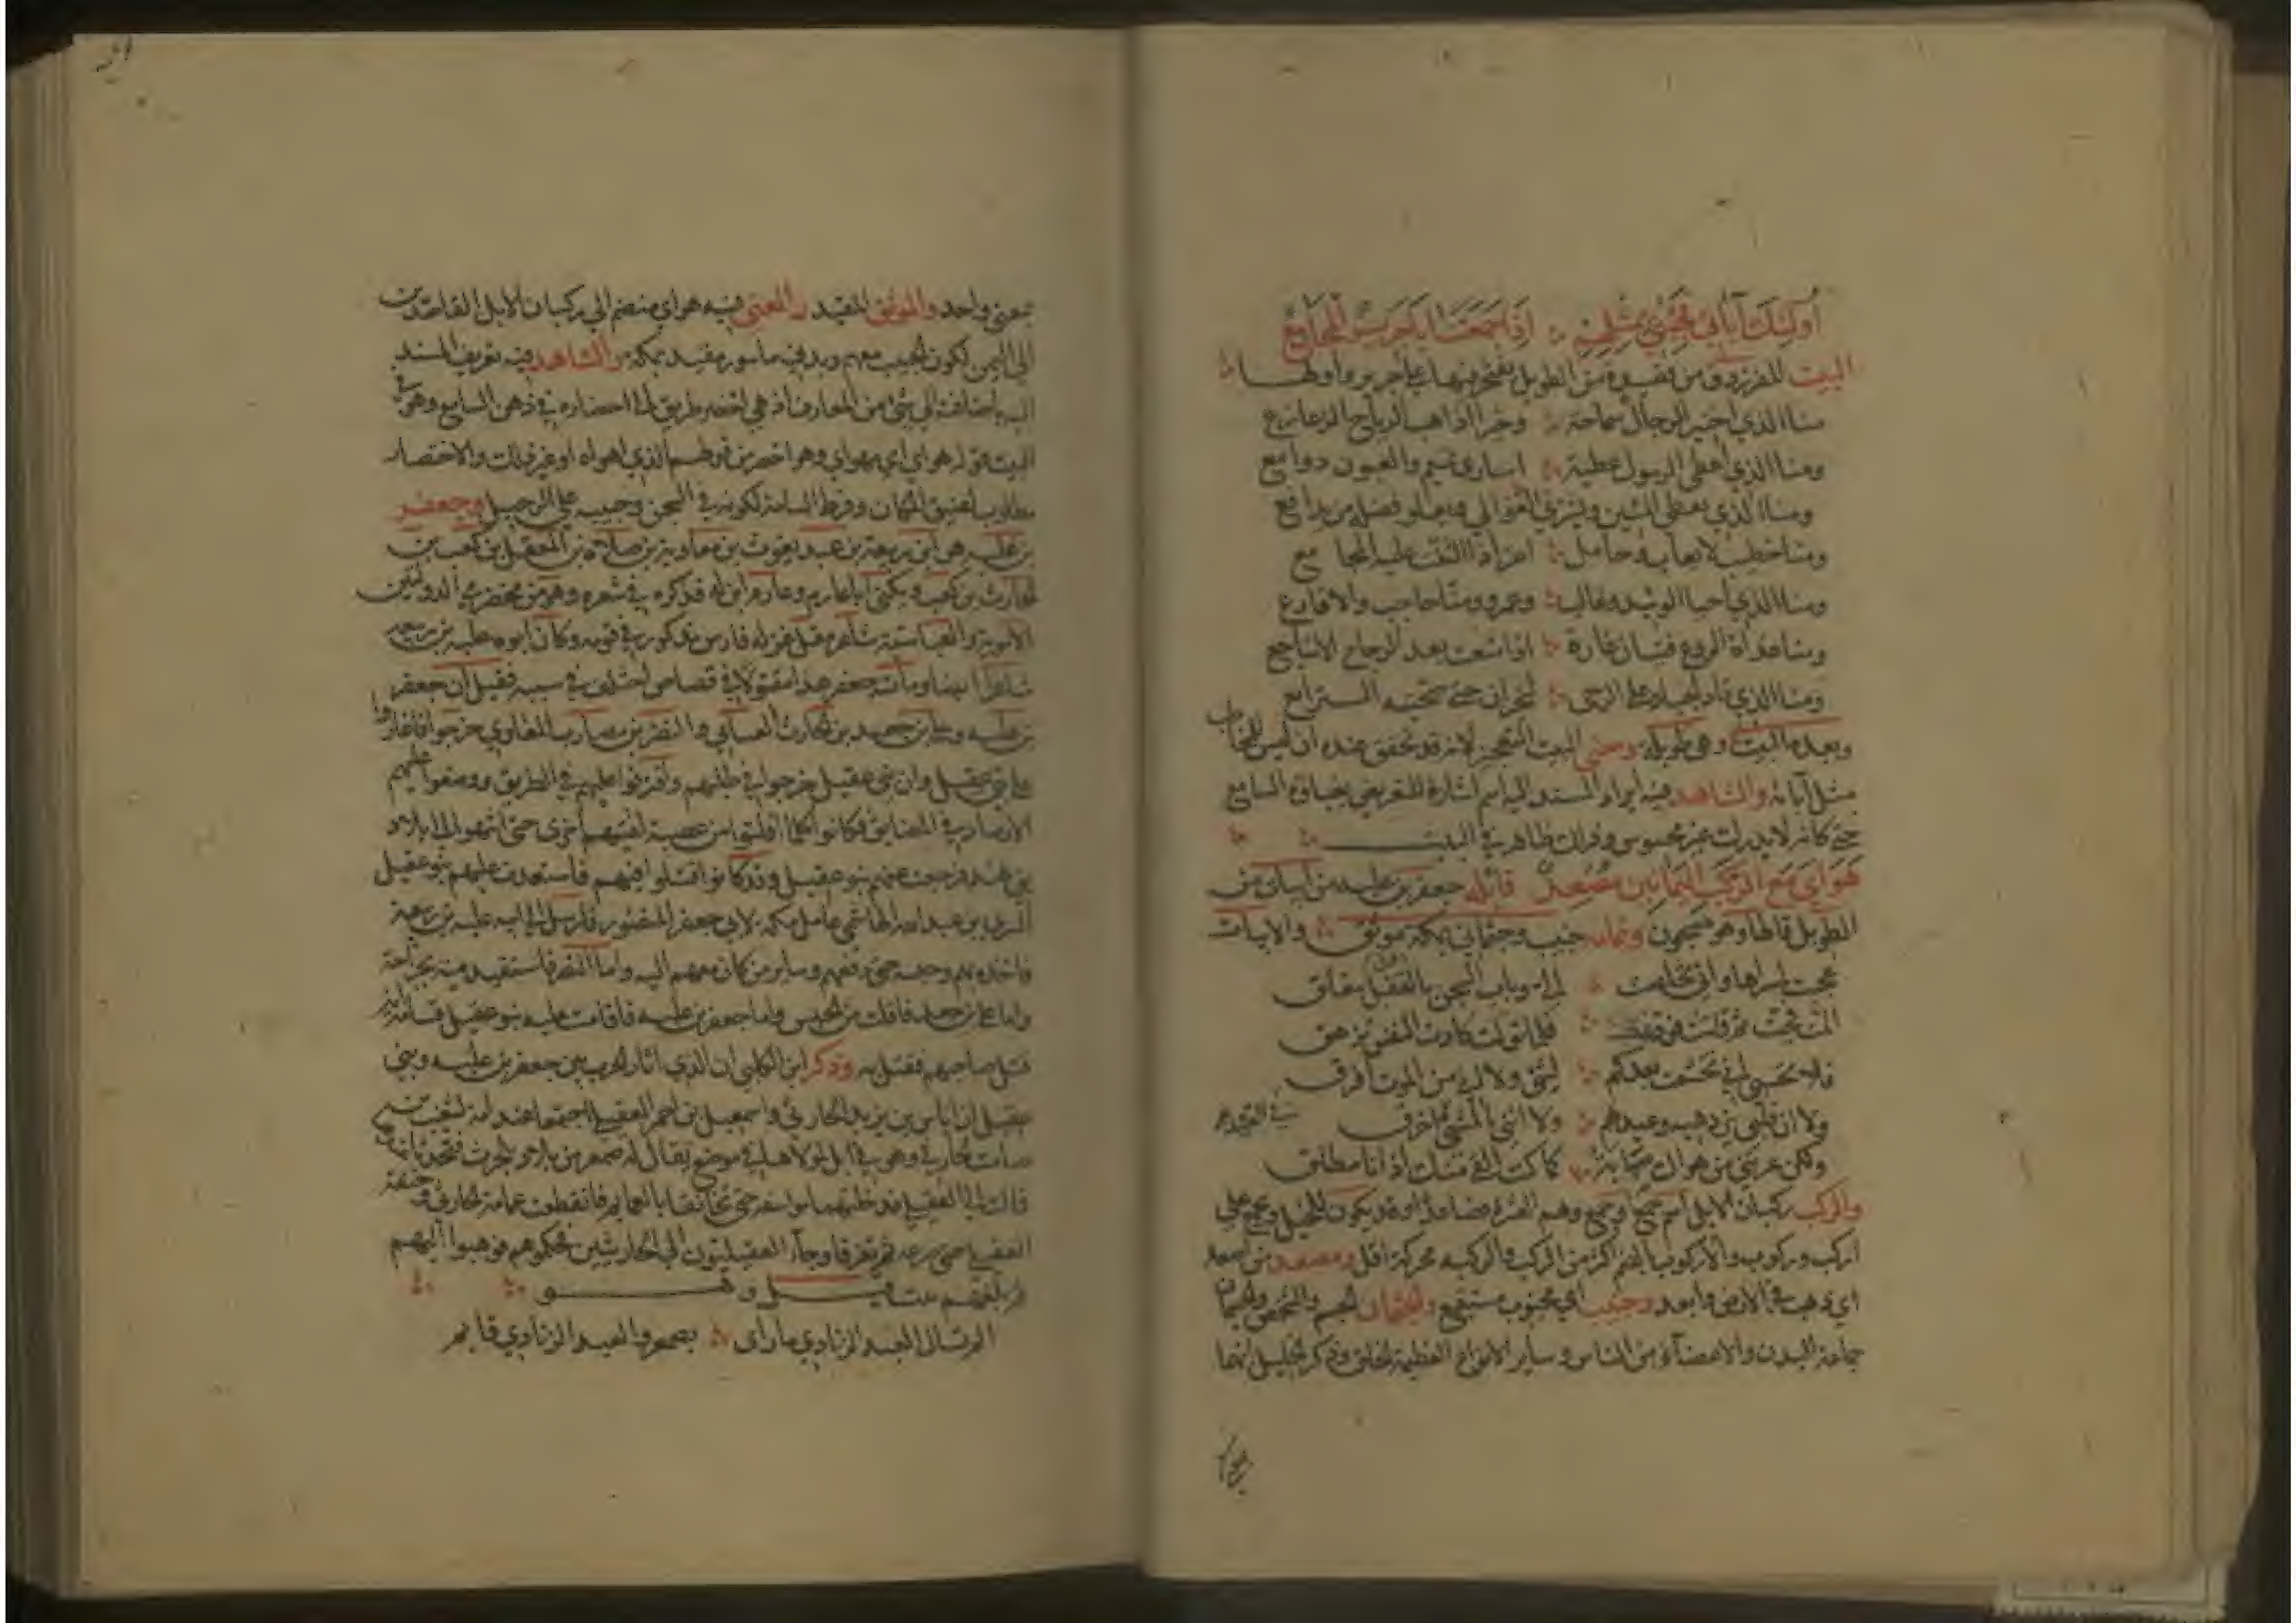 أولئك آبائي فجئني بمثلهم إذا جمعتنا يا جرير المجامع
البيت للفرزدق من قصيدة من الطويل يفتخر فيها على جرير وأولها
منا الذي اختير الرجال سماحة وخيرا اذا هب الرياح الزعازع
ومنا الذي أعطى الرسول عطية اسارى تميم والعيون دوامع
ومنا الذي يعطي المئين ويشتري الغوالي ويعلو فضله من يدافع
ومنا خطيب لا يعاب وحامل اغر اذا التفت عليه المجامع
ومنا الذي احيا الوئيد وغالب وعمرو ومنا حاجب والاقارع
ومنا غداة الروع فتيان غارة اذا متعت بعد الزجاج الاشاجع
ومنا الذي قاد الجياد على الوجى لنجران حتى صبحته النزائع
وبعده البيت وهي طويلة ومعنى البيت التعجيز لانه قد تحقق عنده ان ليس للمخاطب
مثل آبائه والشاهد فيه ايراد المسند اليه اسم اشارة للتعريض بغباوة السامع
حتى كانه لا يدرك غير المحسوس وذلك ظاهر في البيت
هواي مع الركب اليمانين مصعد قائله جعفر بن علبه من ابيات من
الطويل قالها وهو مسجون وتمامه جنيب وجثماني بمكة موثق والابيات
عجبت لمسراها واني تخلصت الي وباب السجن بالقفل مغلق
المت فحيت ثم قامت فودعت فلما تولت كادت النفس تزهق
فلا تحسبي اني تخشعت بعدكم لشيء ولا اني من الموت افرق
ولا ان قلبي يزدهيه وعيدهم ولا انني بالمشي في القيد اخرق
ولكن عرتني من هواك صبابة كما كنت القى منك اذ انا مطلق
والركب ركبان الابل اسم جمع او جمع وهم العشرة فصاعدا وقد يكون للخيل ويجمع على
اركب وركوب والاركوب بالضم اكثر من الركب والركبه محركة اقل ومصعد من اصعد
اي ذهب في الارض وابعد وجنيب اي مجنوب مستتبع والجثمان الجسم والشخص والجسمان
جماعة البدن والاعضاء من الناس وسائر الانواع العظيمة الخلق وذكر الخليل انهما
بمعنى واحد والموثق المقيد والمعنى فيه هواي منضم الى ركبان الابل القاصدين
الى اليمن لكون الحبيب معهم وبدني ماسور مقيد بمكة والشاهد فيه تعريف المسند
اليه باضافته الى شيء من المعارف اذ هي اخصر طريق الى احضاره في ذهن السامع وهو في
البيت قوله هواي اي مهواي وهو اخصر من قولهم الذي اهواه او غير ذلك والاختصار
مطلوب لضيق المقام وفرط السامة لكونه في السجن وحبيبه على الرحيل وجعفر
بن علبه هو ابن ربيعة بن عبد يغوث بن معاوية بن صلاة بن المعقل بن كعب بن
الحارث بن كعب ويكنى ابا عارم وعارم ابن له قد ذكره في شعره وهو من مخضرمي الدولتين
الاموية والعباسية شاعر مقل غزل فارس مذكور في قومه وكان ابوه علبه بن ربيعه
شاعرا ايضا ومات جعفر هذا مقتولا في قصاص اختلف في سببه فقيل ان جعفر
بن علبه وعلي بن جعيد بن الحارث العباسي والنضر بن مضارب المعاوي خرجوا فاغاروا
على بني عقيل وان بني عقيل خرجوا في طلبهم وافترقوا عليهم في الطريق ووضعوا عليهم
الارصاد في المضايق فكانوا كلما افلتوا من عصبة لقيتهم اخرى حتى انتهوا الى بلاد
بني نهد فرجعت عنهم بنو عقيل وقد كانوا قتلوا فيهم فاستعدت عليهم بنو عقيل
السري بن عبد الله الهاشمي عامل مكة لابي جعفر المنصور فارسل الى ابيه علبه بن ربيعة
فاخذه بهم وحبسه حتى دفعهم وساير من كان معهم اليه واما النضر فاستقيد منه بجراحة
واما علي بن جعيد فافلت من الحبس واما جعفر بن علبه فاقامت عليه بنو عقيل قسامة انه
قتل صاحبهم فقتل به وذكر ابن الكلبي ان الذي اثار الحرب بين جعفر بن علبه وبني
عقيل ان اياس بن يزيد الحارثي واسمعيل بن احمر العقيلي اجتمعا عند امة لشعيب بن
صامت الحارثي وهي في ابل لمولاها في موضع يقال له صمعر من بلاد بلحرث فتحدثا عندها
فمالت الى العقيلي فدخلتهما مؤاسفة حتى تخانقا بالعمائم فانقطعت عمامة الحارثي وخنقه
العقيلي حتى صرعه ثم تفرقا وجاء العقيليون الى الحارثيين فحكموهم فوهبوا اليهم
ثم بلغهم بيت قيل وهو
الم تسال العبد الزيادي ما راى بصمعر والعبد الزيادي قائم